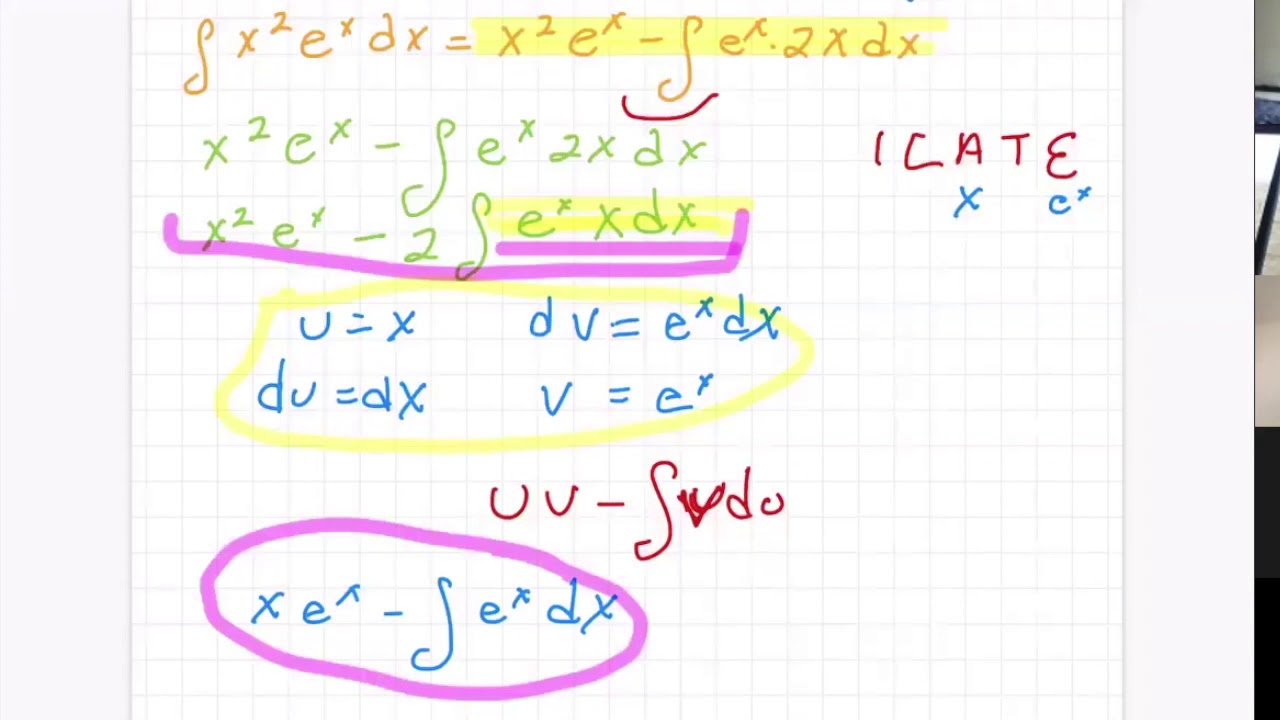 ∫ x² eˣ dx = x² eˣ - ∫ eˣ · 2x dx
x² eˣ - ∫ eˣ 2x dx
I L A T E
x eˣ
x² eˣ - 2 ∫ eˣ x dx
u = x dv = eˣ dx
du = dx v = eˣ
uv - ∫ v du
x eˣ - ∫ eˣ dx